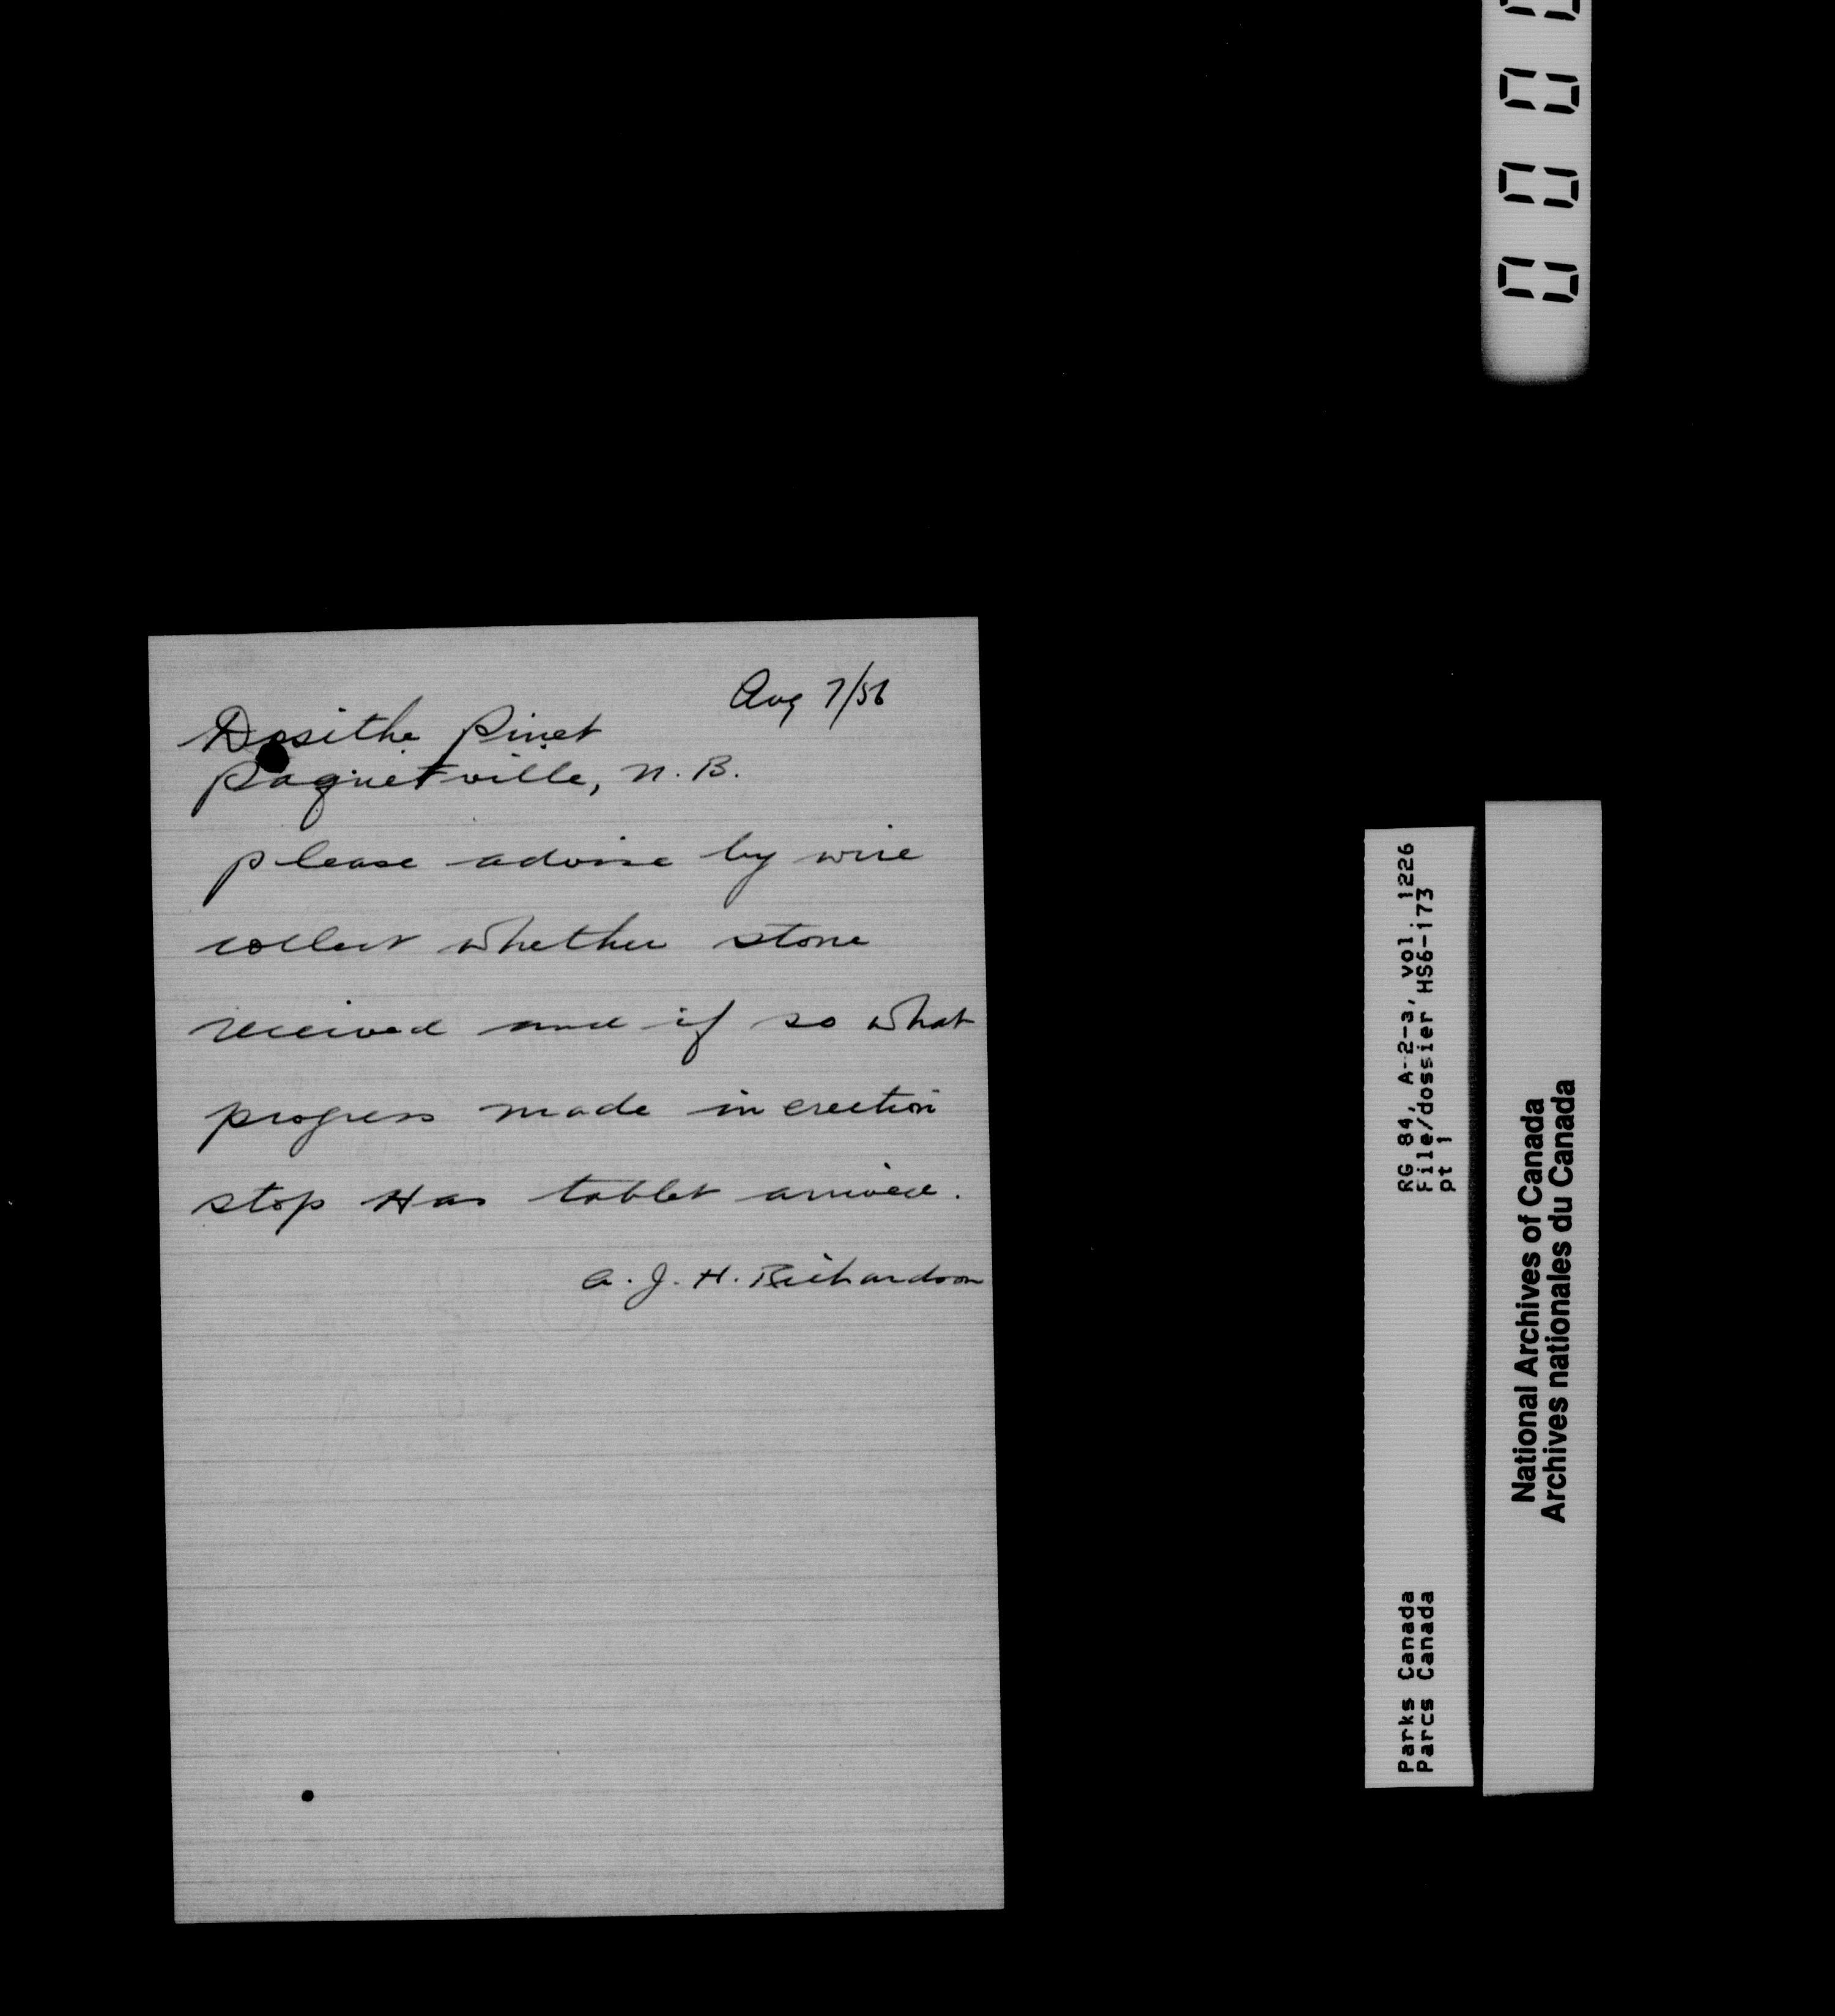 Aug 7/56
Dosithe Pinet
Paquetville, N.B.
please advise by wire
collect whether stone
received and if so what
progress made in erection
stop Has tablet arrived.
A. J. H. Richardson
RG 84, A-2-a, vol. 1226
File/dossier HS6-173
pt 1
Parks Canada
Parcs Canada
National Archives of Canada
Archives nationales du Canada